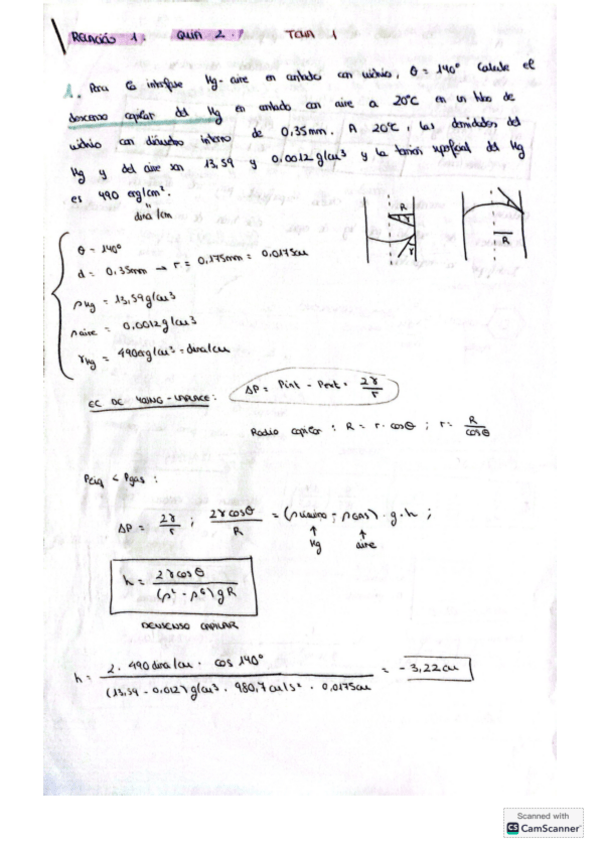 RELACIÓN 1: QUIM 2. TEMA 1
1. Para la interfase Hg-aire en contacto con vidrio, θ = 140° Calcule el
descenso capilar del Hg en contacto con aire a 20°C en un tubo de
vidrio con diámetro interno de 0,35mm. A 20°C, las densidades del
Hg y del aire son 13,59 y 0,0012 g/cm³ y la tensión superficial del Hg
es 490 erg/cm².
dina/cm
R
r
R
θ = 140°
d = 0,35mm → r = 0,175mm = 0,0175cm
ρHg = 13,59 g/cm³
ρaire = 0,0012 g/cm³
γHg = 490 erg/cm³ = dina/cm
EC DE YOUNG-LAPLACE: ΔP = Pint - Pext = 2γ/r
Radio capilar: R = r · cosθ ; r = R/cosθ
Pliq < Pgas :
ΔP = 2γ/r ; 2γcosθ/R = (ρLíquido - ρGAS) · g · h ;
Hg aire
h = 2γcosθ/(ρᴸ - ρᴳ)gR
DESCENSO CAPILAR
h = 2 · 490 dina/cm · cos 140°/(13,59 - 0,012) g/cm³ · 980,7 cm/s² · 0,0175cm = -3,22cm
Scanned with
CS CamScanner